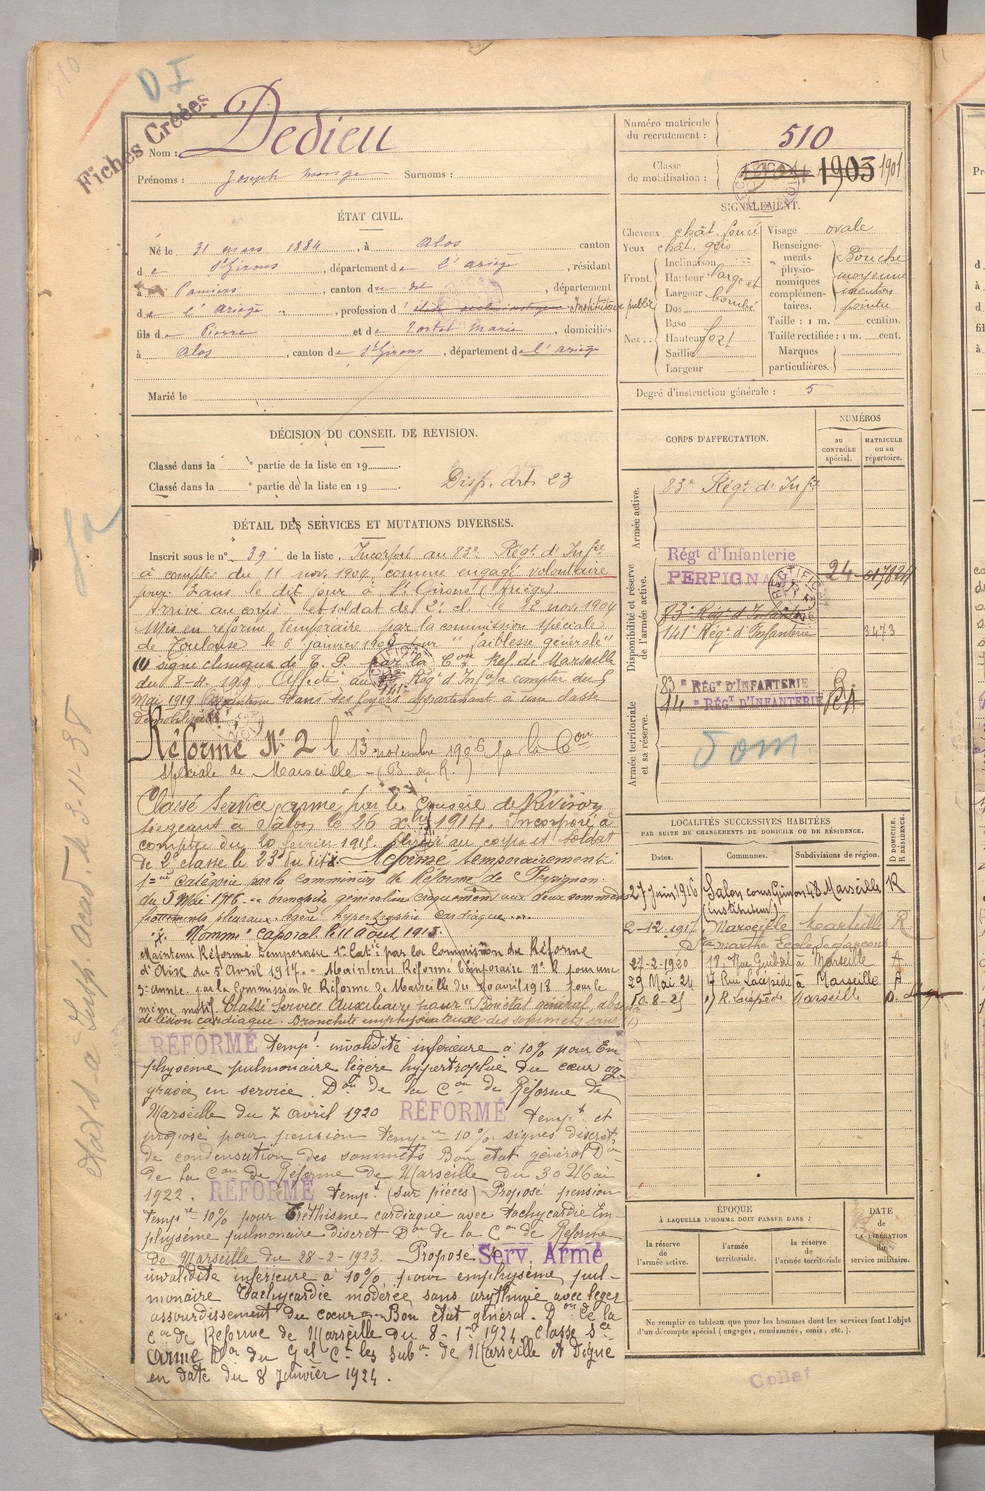 D I
Fiches Créées
Nom : Dedieu
Prénoms : Joseph Surnoms :
Numéro matricule du recrutement : 510
Classe de mobilisation : 1903 1901
ÉTAT CIVIL.
Né le 31 mars 1884, à Alos canton
de St Girons, département de l'ariège, résidant
à Pamiers, canton du dit, département
de l'ariège, profession d'élève ecclésiastique Instituteur public
fils de Pierre et de Tortet Marie, domiciliés
à Alos, canton de St Girons, département de l'ariège
Marié le
SIGNALEMENT.
Cheveux chât. foncé
Yeux chât. gris
Front. Inclinaison
Hauteur large et
Largeur bombé
Nez.. Dos
Base
Hauteur fort
Saillie
Largeur
Visage ovale
Renseignements physionomiques complémentaires. Bouche moyenne menton
Taille : 1 m. centim.
Taille rectifiée : 1 m. cent.
Marques particulières.
Degré d'instruction générale : 5
DÉCISION DU CONSEIL DE REVISION.
Classé dans la e partie de la liste en 19
Classé dans la e partie de la liste en 19
Disp. Art. 23
DÉTAIL DES SERVICES ET MUTATIONS DIVERSES.
Inscrit sous le n° 39 de la liste. Incorporé au 83e Régt d'Infrie
à compter du 11 nov. 1904, comme engagé volontaire
pour 3 ans le dit jour à St Girons (Ariège)
Arrivé au corps et soldat de 2e cl. le 12 nov. 1904
Mis en réforme temporaire par la commission spéciale
de Toulouse le 5 janvier 190 "faiblesse générale"
signe clinique de T. P. par la Con Ref. de Marseille
du 8-4-1919 Affecté au Régt d'Infie à compter du 5
Mai 1919 Maintenu dans ses foyers appartenant à une classe
démobilisée
Réformé N° 2 le 13 novembre 1906 par la Con
Spéciale de Marseille
Classé Service armé par le Conseil de Révision
siégeant à Salon le 26 Xbre 1914. Incorporé à
compter du 20 février 1915. Arrivé au corps et soldat
de 2e classe le 23 du dit. Réformé temporairement
1ère catégorie par la commission de Réforme de Perpignan
du 5 Mai 1916 bronchite généralisée craquements aux deux sommets
frottements pleuraux légère hypertrophie cardiaque
Nommé Caporal le 11 Août 1915.
Maintenu Réformé Temporaire 1e Catie par la Commission de Réforme
d'Aix du 5 Avril 1917. Maintenu Réformé Temporaire N° 1 pour une
3e année par la Commission de Réforme de Marseille du 20 avril 1918 pour le
même motif. Classé Service Auxiliaire pour Bon état général, absence
de lésion cardiaque. Bronchite emphysémateuse des sommets sans
RÉFORMÉ tempt invalidité inférieure à 10% pour Em-
physème pulmonaire légère hypertrophie du cœur ag-
gravée en service. Don de la Con de Réforme de
Marseille du 7 avril 1920 RÉFORMÉ tempt et
proposé pour pension tempre 10% signes discrets
de condensation des sommets Bon état général Don
de la Con de Réforme de Marseille du 30 Mai
1922. RÉFORMÉ tempt (sur pièces) Proposé pension
tempre 10% pour Eréthisme cardiaque avec tachycardie Em-
physème pulmonaire discret Don de la Con de Réforme
de Marseille du 28-2-1923. Proposé Serv. Armé
invalidité inférieure à 10% pour emphysème pul-
monaire Tachycardie modérée sans arythmie avec léger
assourdissement du cœur Bon état général. Don de la
Con de Réforme de Marseille du 8-1-1924. classé Sce
armé Don du Gal Ct les subons de Marseille et Digne
en date du 8 Janvier 1924.
CORPS D'AFFECTATION.
NUMÉROS
AU CONTRÔLE spécial.
MATRICULE ou au répertoire.
Armée active.
83e Régt d'Infie
Disponibilité et réserve de l'armée active.
Régt d'Infanterie
PERPIGNAN
24
83e Régt d'Infanterie
141e Régt d'Infanterie 3473
Armée territoriale et sa réserve.
83e RÉGT D'INFANTERIE
14 e RÉGT D'INFANTERIE
Dom
LOCALITÉS SUCCESSIVES HABITÉES
PAR SUITE DE CHANGEMENTS DE DOMICILE OU DE RÉSIDENCE.
Dates. Communes. Subdivisions de région. D DOMICILE. R RÉSIDENCE.
27 Juin 1916 Salon cours Gimon 48 Marseille R
(instituteur)
2-12-1917 Marseille Marseille R
Ste marthe École de garçons
27-2-1920 18, Rue Guibal à Marseille A
29 Mai 24 17 Rue Lacépède à Marseille A
10-8-25 17 R. Lacépède Marseille D.
ÉPOQUE
À LAQUELLE L'HOMME DOIT PASSER DANS :
la réserve de l'armée active.
l'armée territoriale.
la réserve de l'armée territoriale
DATE de LA LIBÉRATION du service militaire.
Ne remplir ce tableau que pour les hommes dont les services font l'objet
d'un décompte spécial (engagés, condamnés, omis, etc.).
Collat